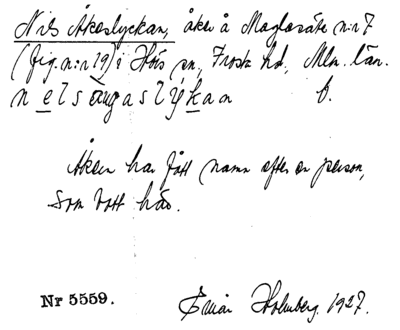 Nils Åkeslyckan, åker å Maglasäte n:r 7
(fig. n:r 19) i Hörs sn, Frosta hd, Mlm. län.
n e l s åŋ a s l y k a n f.
Åkern har fått namn efter en person,
som bott här.
Nr 5559.
Einar Holmberg. 1927.